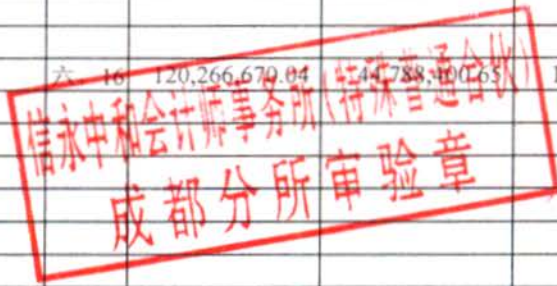 六、16 120,266,679.04 44,788,400.65
信永中和会计师事务所(特殊普通合伙)
成都分所审验章